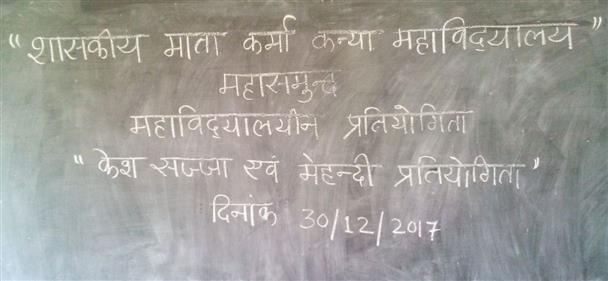 "शासकीय माता कर्मा कन्या महाविद्यालय"
महासमुन्द
महाविद्यालयीन प्रतियोगिता
"केश सज्जा एवं मेहन्दी प्रतियोगिता"
दिनांक 30/12/2017